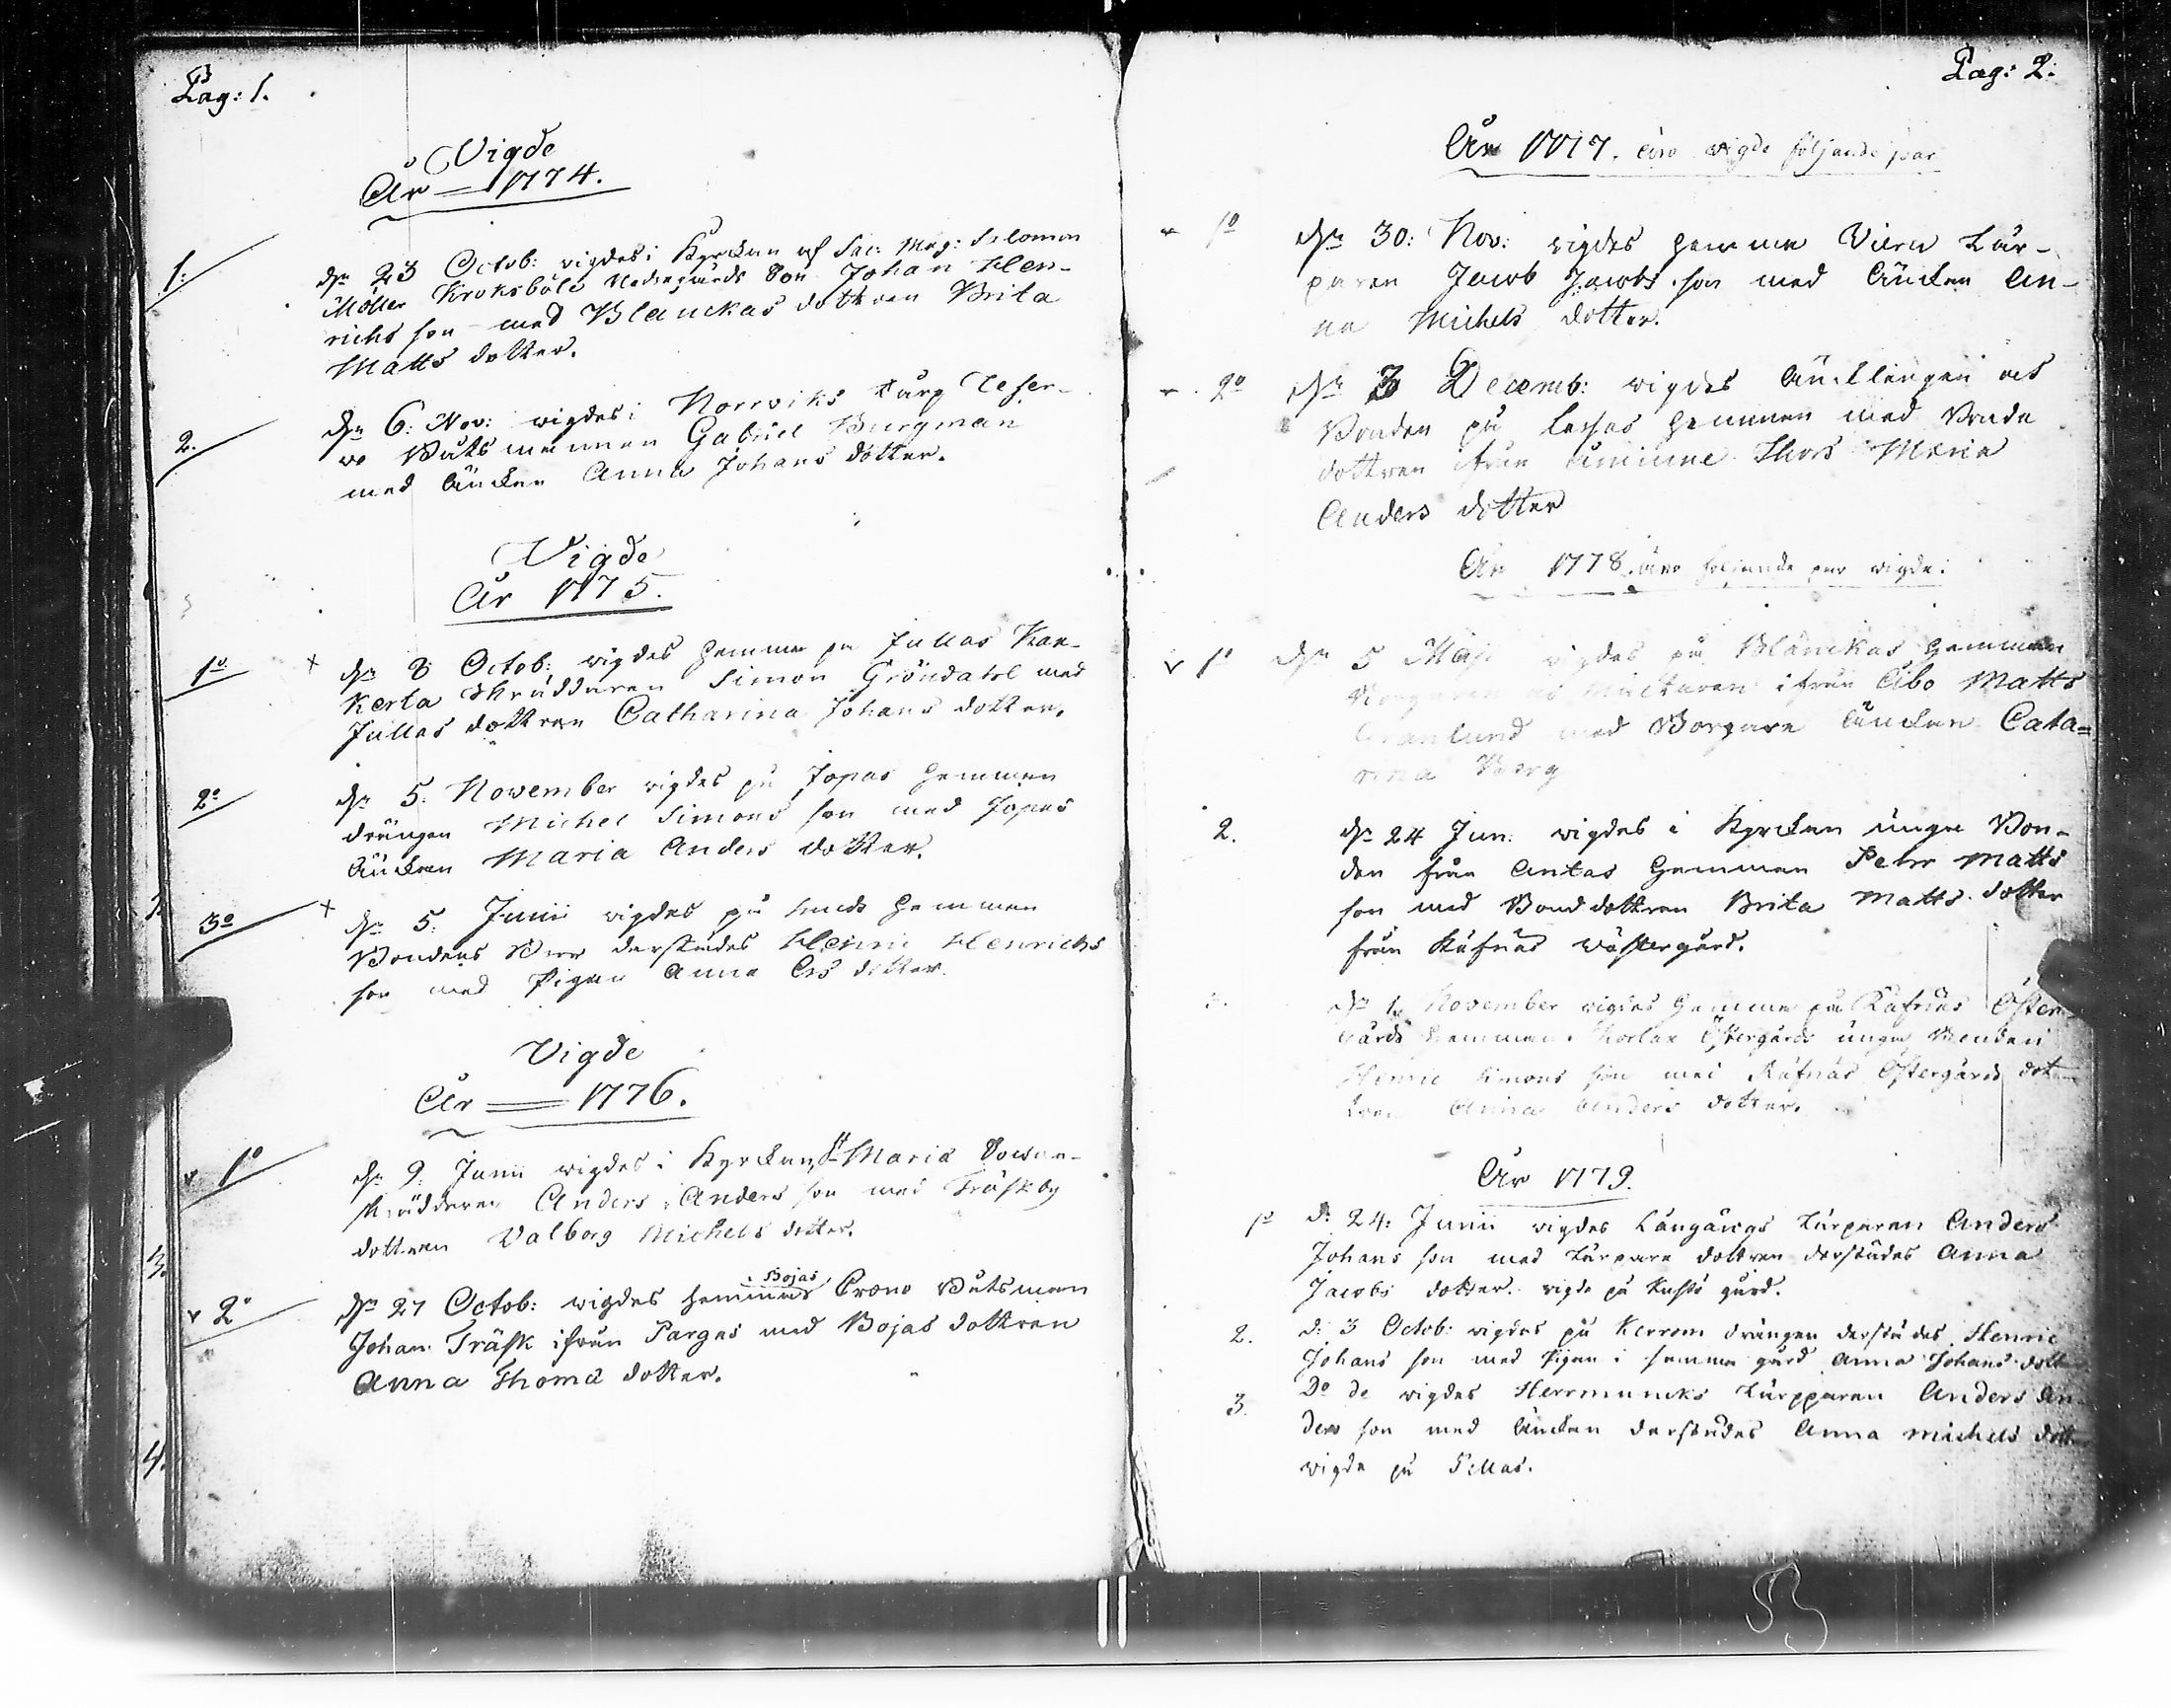 Pag: 1.
Vigde
År = 1774.
1. dn 23 Octob: vigdes i Kyrckan af Sac: Mag: Salomon
Möller Kroksböle Nedergårds Son Johan Hen-
richs son med Blanckas dottren Brita
Matts dotter.
2. dn 6: Nov: vigdes i Norrviks Torp Reser-
vo Båtsmannen Gabriel Burgman
med Änckan Anna Johans dotter.
Vigde
År 1775.
1o dn 8 Octob: vigdes hemma på Jullas
Kerta Skräddaren Simon Gröndahl med
Jullas dottren Catharina Johans dotter.
2o dn 5: November vigdes på Jopas hemman
drängen Michel Simons son med Jopas
Änckan Maria Anders dotter.
3o dn 5: Junii vigdes på hemman
Bondens derstädes Henric Henrichs
son med Pigan Anna Ers dotter.
Vigde
År = 1776.
1o dn 9: Junii vigdes i Kyrckan St Maria Socken-
skräddaren Anders Anders son med Träskby
dottren Valborg Michels dotter.
2o dn 27 Octob: vigdes hemma Bojas Crono Båtsman
Johan Träsk ifrån Pargas med Bojas dottren
Anna Thomä dotter.
Pag: 2:
År 1777. äro vigde följande par
1o dn 30: Nov: vigdes hemma Tor-
paren Jacob Jacobs son med Änckan An-
na Michels dotter.
2o dn 3 Decemb: vigdes Äncklingen och
Bonden på Lassas hemman med Bonde
dottren ifrån Thors Maria
Anders dotter
År 1778. äro följande par vigde:
1o dn 5 Maji vigdes på Blanckas hemman
ifrån Åbo Matts
Granlund med Borgare Änckan Cata=
rina Berg
2. dn 24 Jun: vigdes i Kyrckan unga Bon-
den från Antas hemman Pehr Matts
son med Bonddottren Brita Matts dotter
från Råfnäs Wästergård.
dn 1 November vigdes hemma på Råfnäs Öster
gårds hemman Östergårds unga Bonden
Henric Simons son med Råfnäs Östergårds dot-
tren Anna Anders dotter.
År 1779.
1o d: 24: Junii vigdes Långängs Torparen Anders
Johans son med Torpare dottren derstädes Anna
Jacobs dotter. vigde på gård.
2. d: 3 Octob: vigdes på Kerrom drängen derstädes Henric
Johans son med Pigan i samma gård Anna Johans dott
3. Do de vigdes Herrmuncks Torpparen Anders An-
ders son med Änckan derstädes Anna Michels dott
vigde på Pellas.
53